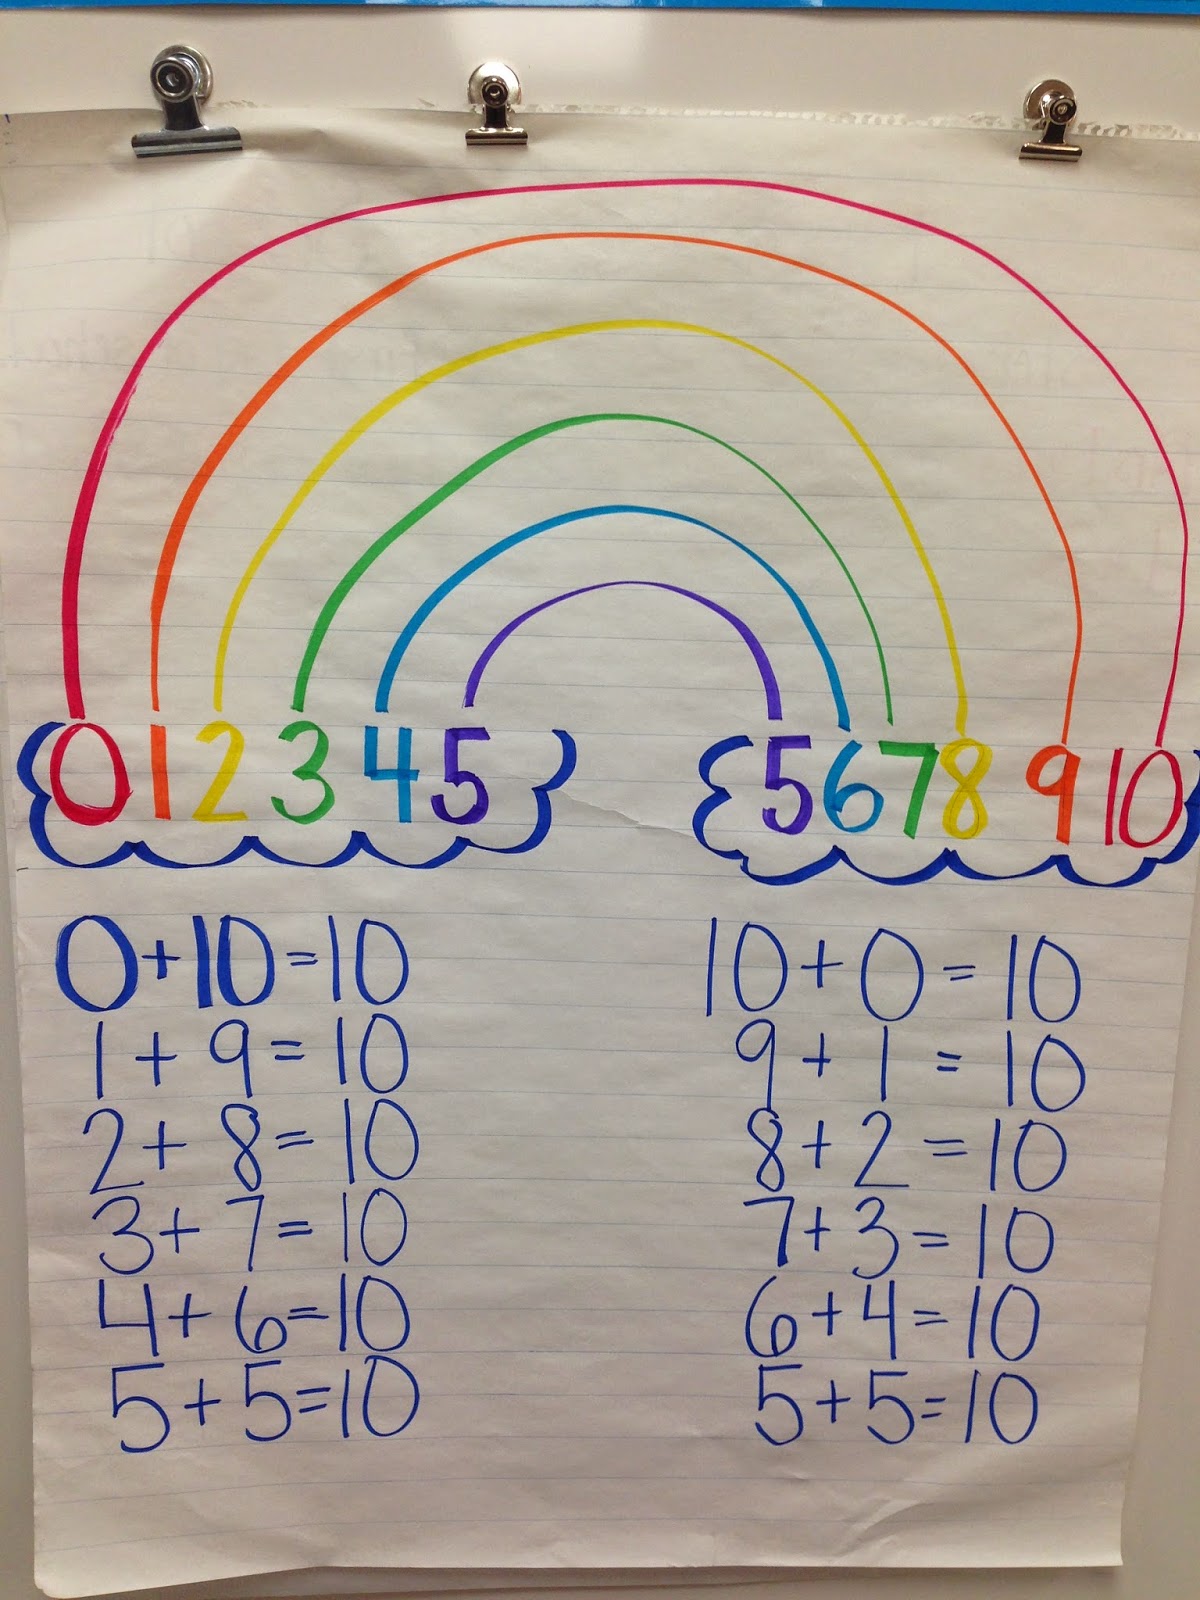 0 1 2 3 4 5 5 6 7 8 9 10
0+10=10 10+0=10
1+9=10 9+1=10
2+8=10 8+2=10
3+7=10 7+3=10
4+6=10 6+4=10
5+5=10 5+5=10